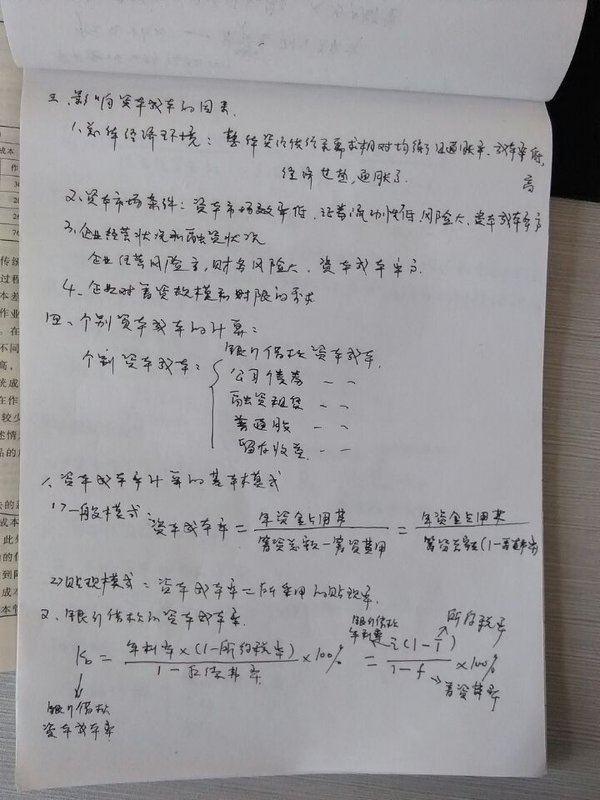 三、影响资本成本的因素
1、总体经济环境：整体资金供给需求相对均衡且通胀率，成本率低，
经济过热，通胀了 高
2、资本市场条件：资本市场效率低，证券流动性低，风险大，资本成本率高
3、企业经营状况和融资状况
企业经营风险高，财务风险大，资本成本率高.
4、企业对筹资规模和时限的需求
四、个别资本成本的计算：
个别资本成本：银行借款资本成本.
公司债券 〃 〃
融资租赁 〃 〃
普通股 〃 〃
留存收益 〃 〃
1、资本成本率计算的基本模式
1) 一般模式：资本成本率 = 年资金占用费 / 筹资总额-筹资费用 = 年资金占用费 / 筹资总额(1-筹资费率)
2) 贴现模式：资本成本率 = 所采用的贴现率.
2、银行借款的资本成本率.
Kb = 年利率×(1-所得税率) / 1-手续费率 ×100% = i(1-T) / 1-f ×100%
银行借款年利率
所得税率
筹资费率
银行借款
资本成本率